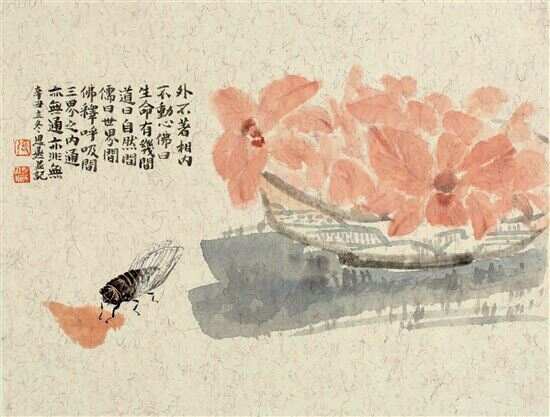 外不著相内
不動心佛曰
生命有幾間
道曰自然間
儒曰世界間
佛釋呼吸間
三界之内通
亦無通亦非無
辛丑立冬記